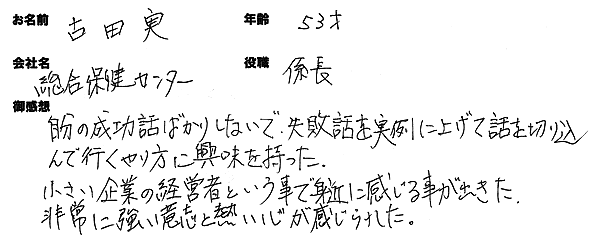 お名前 古田実 年齢 53才
会社名 総合保健センター 役職 係長
御感想
自分の成功話ばかりしないで、失敗話を実例に上げて話を切り込
んで行くやり方に興味を持った.
小さい企業の経営者という事で身近に感じる事が出きた.
非常に強い意志と熱い心が感じられました。